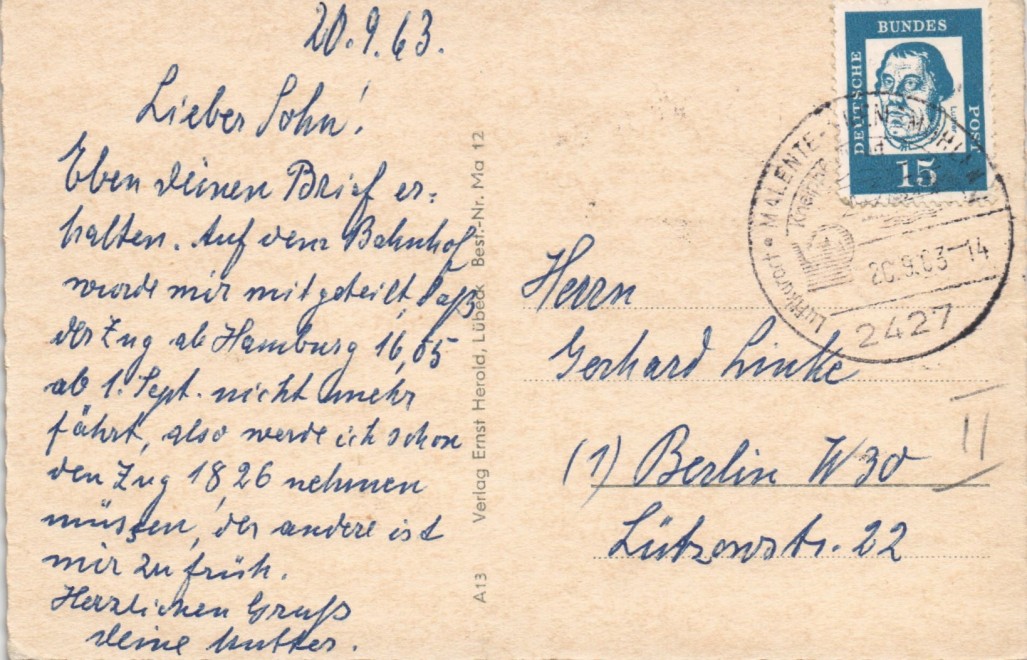 20.9.63.
Lieber Sohn!
Eben deinen Brief er-
halten. Auf dem Bahnhof
wurde mir mitgeteilt, daß
der Zug ab Hamburg 16,05
ab 1. Sept. nicht mehr
fährt, also werde ich schon
den Zug 18,26 nehmen
müssen, der andere ist
mir zu früh.
Herzlichen Gruß
deine Mutter.
A13 Verlag Ernst Herold, Lübeck Best.-Nr. Ma 12
DEUTSCHE
BUNDES
POST
15
MALENTE-
Luftkurort
20.9.63-14
2427
Herrn
Gerhard Linke
(1) Berlin W30
Lützowstr. 22
II